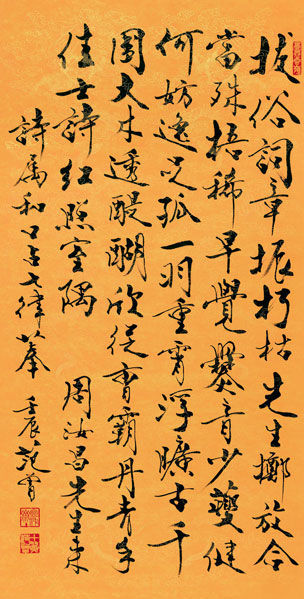 拔俗詞章振朽枯先生擲放合
當殊梧稀早覺爨音少躄健
何妨逸足孤一羽重霄浮曠古千
圍大木透醍醐欣從曹霸丹青手
佳士詩紅照室隅 周汝昌先生來
詩屬和口占七律奉 壬辰范曾